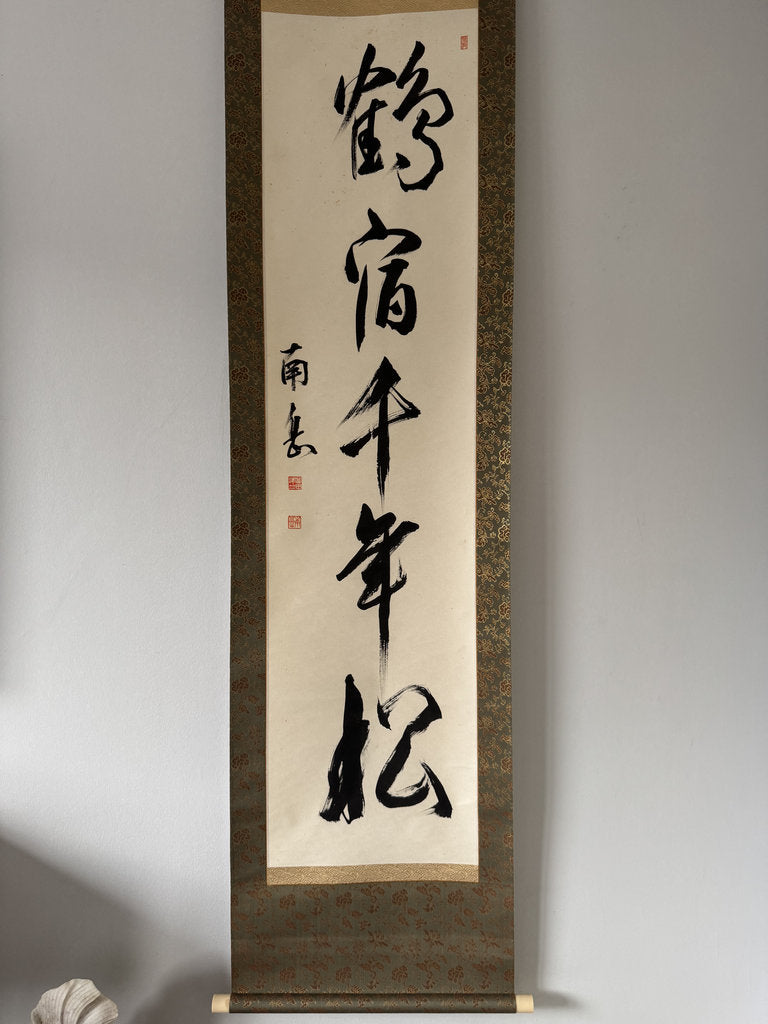 鶴宿千年松
南岳